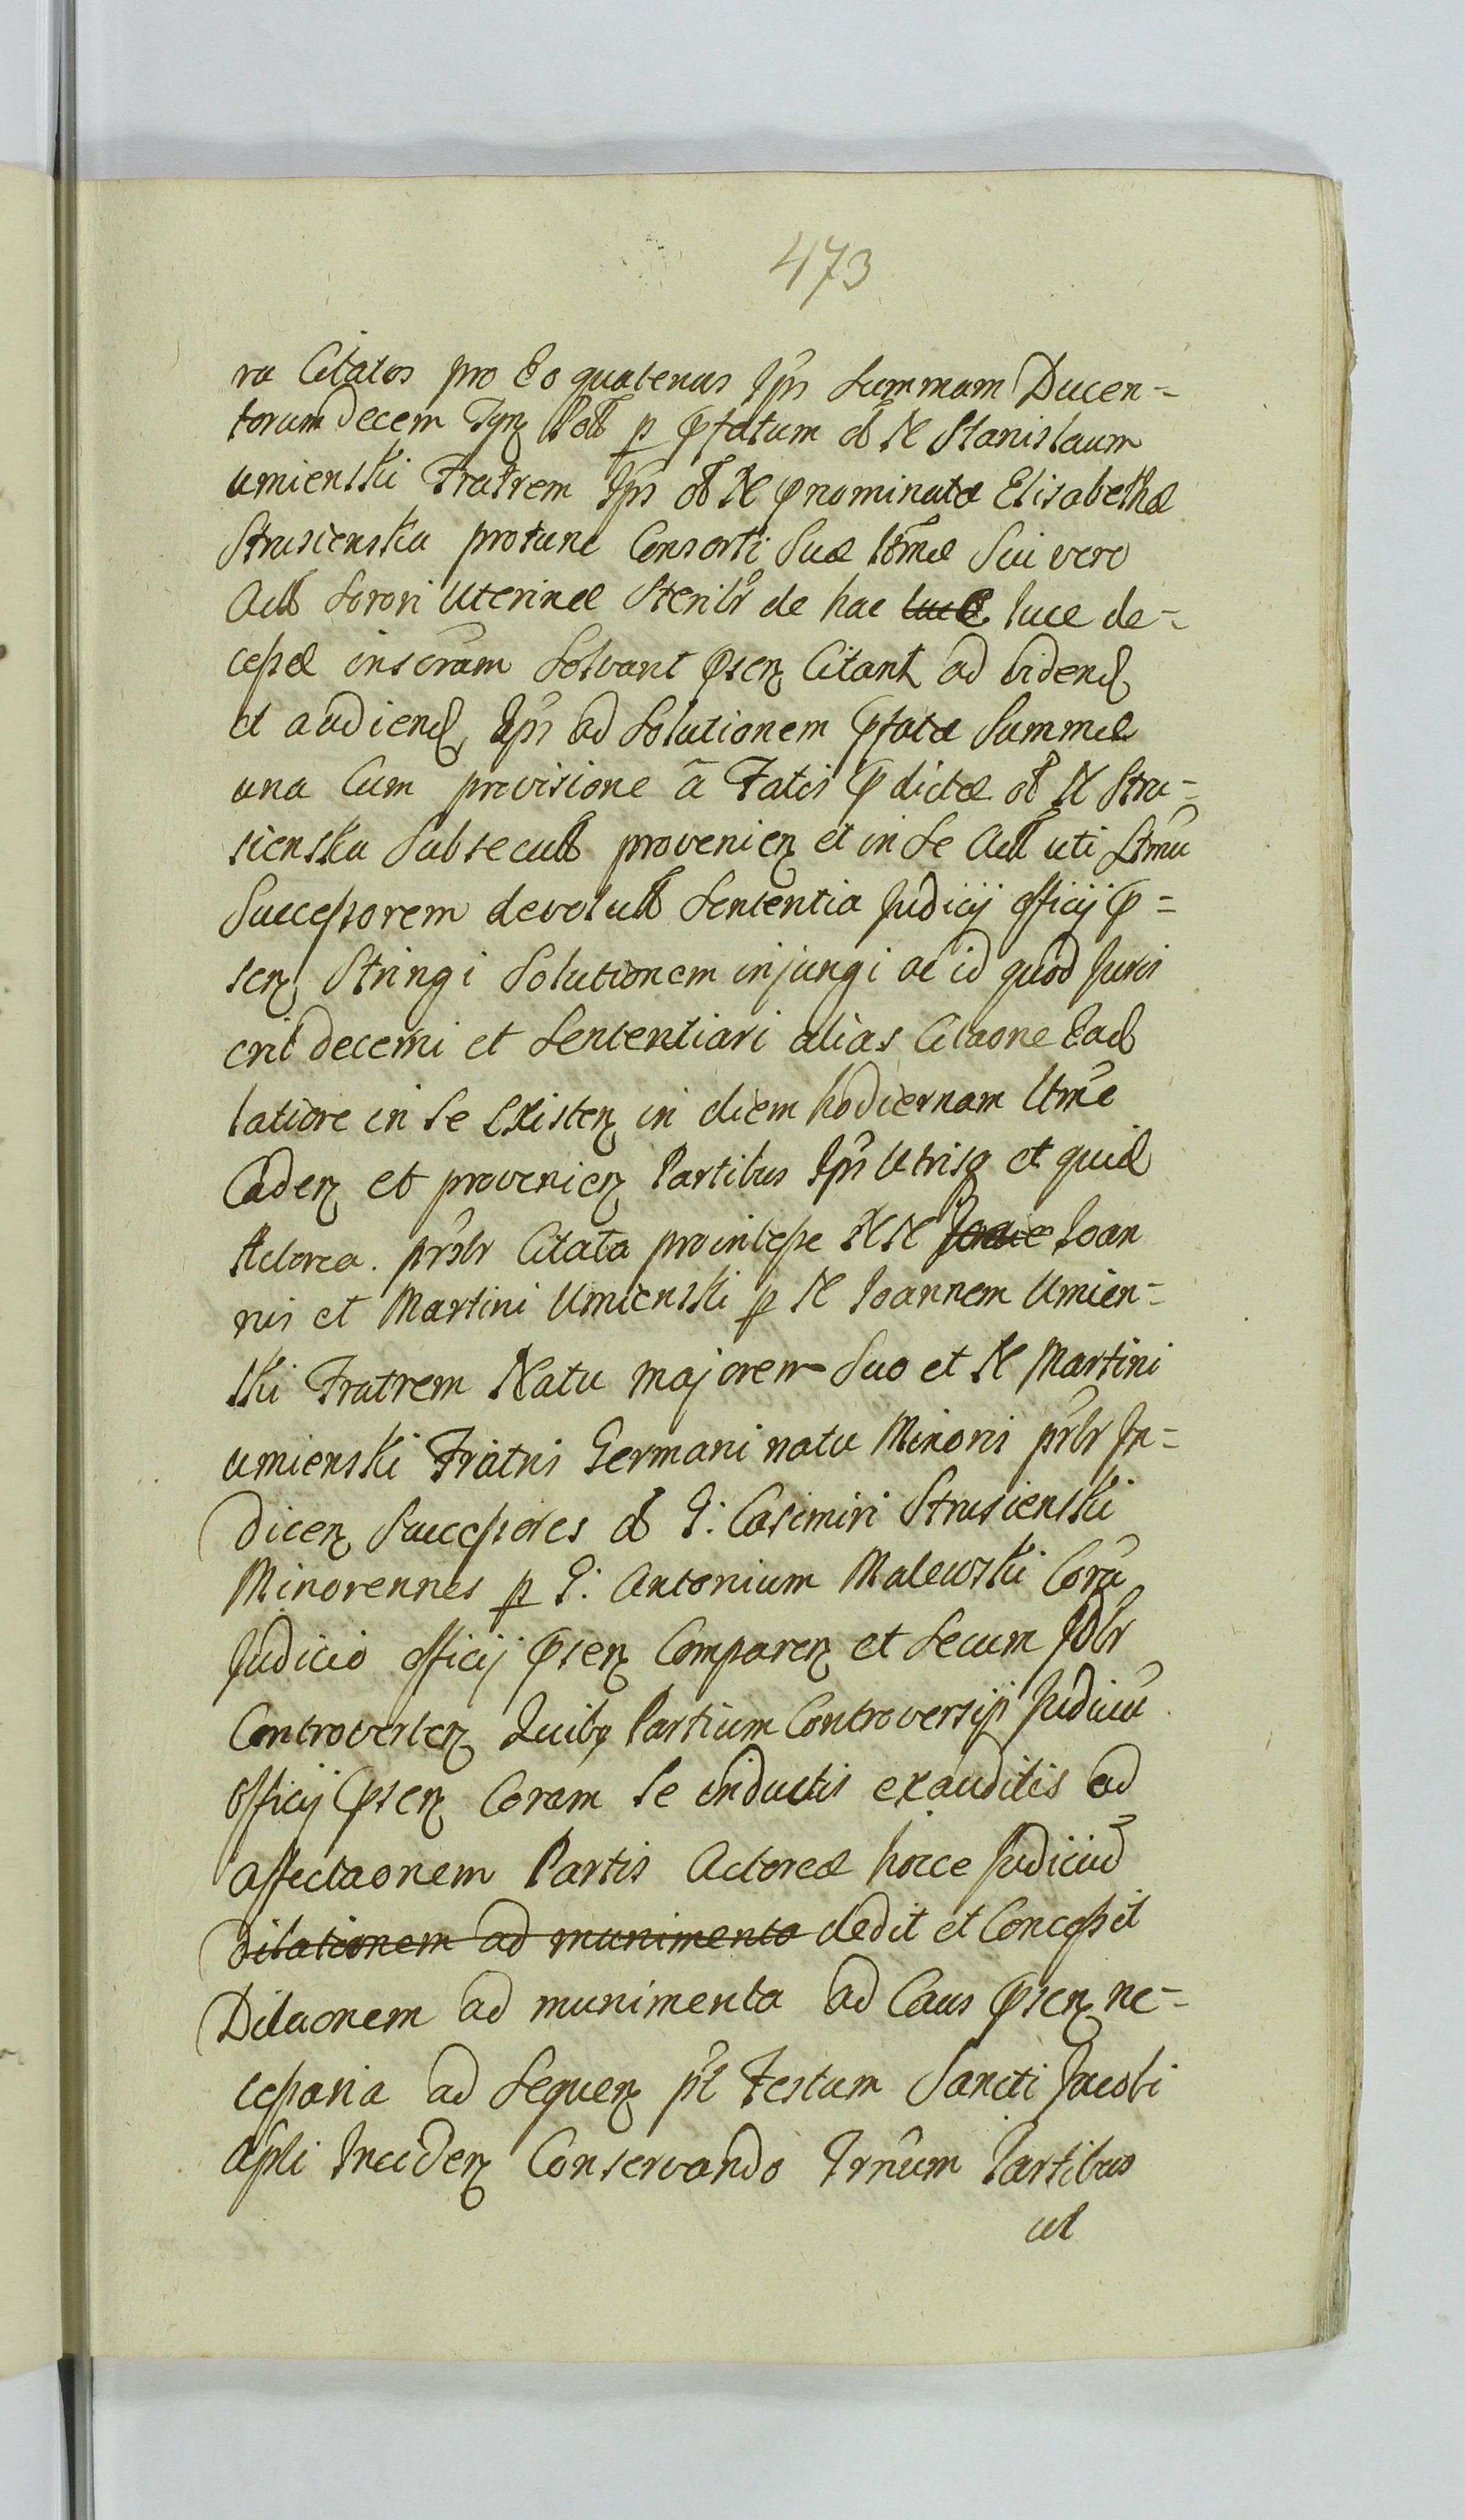 473
ra Citatos pro Eo quatenus Ipsi Summam Ducen-
torum decem Tynz Poll p pfatum ol N Stanislaum
umienski Fratrem Ipsi ol N pnominatæ Elisabethæ
Strusienska protunc Consorti Suæ ltimæ Sui vero
Act Sorori Uterinæ Sterilr de hac luce luce de-
cessæ inscram Solvant psenz Citant ad vidend
et audiend Ipsi ad Solutionem pfatæ Summæ
una Cum provisione ā Fatis pdictæ ol N Stru-
sienska Subsecutt provenienz et in Se Act uti Ltimu
Successorem devolutt Sententia Judicij officij p-
senz Stringi Solutionem injungi ac id quod Juris
erit decerni et Sententiari alias Citaone Ead
latiore in Se Existenz in diem hodiernam ltime
Cadenz et provenienz Partibus Ipsi Utrisq et quid
Actorea. prstr Citata prointesse NN Joan
nis et Martini Umienski p N Joannem Umien-
ski Fratrem Natu majorem Suo et N Martini
umienski Fratris Germani natu Minoris prstr In-
dicenz Successores ol G: Casimiri Strusienski
Minorennes p G: Antonium Malewski Corā
Judicio officij psenz Comparenz et Secum Jdlr
Controvertenz Quibq Partium Controversijs Judiciū
officij psenz Coram Se inductis exauditis ad
affectaonem Partis Actoreæ hocce Judiciū
Dilationem ad munimenta dedit et Concessit
Dilaonem ad munimenta ad Caus psenz ne-
cessaria ad Sequenz pt Festum Sancti Jacobi
Apli Incidenz Conservando Trnum Partibus
ut